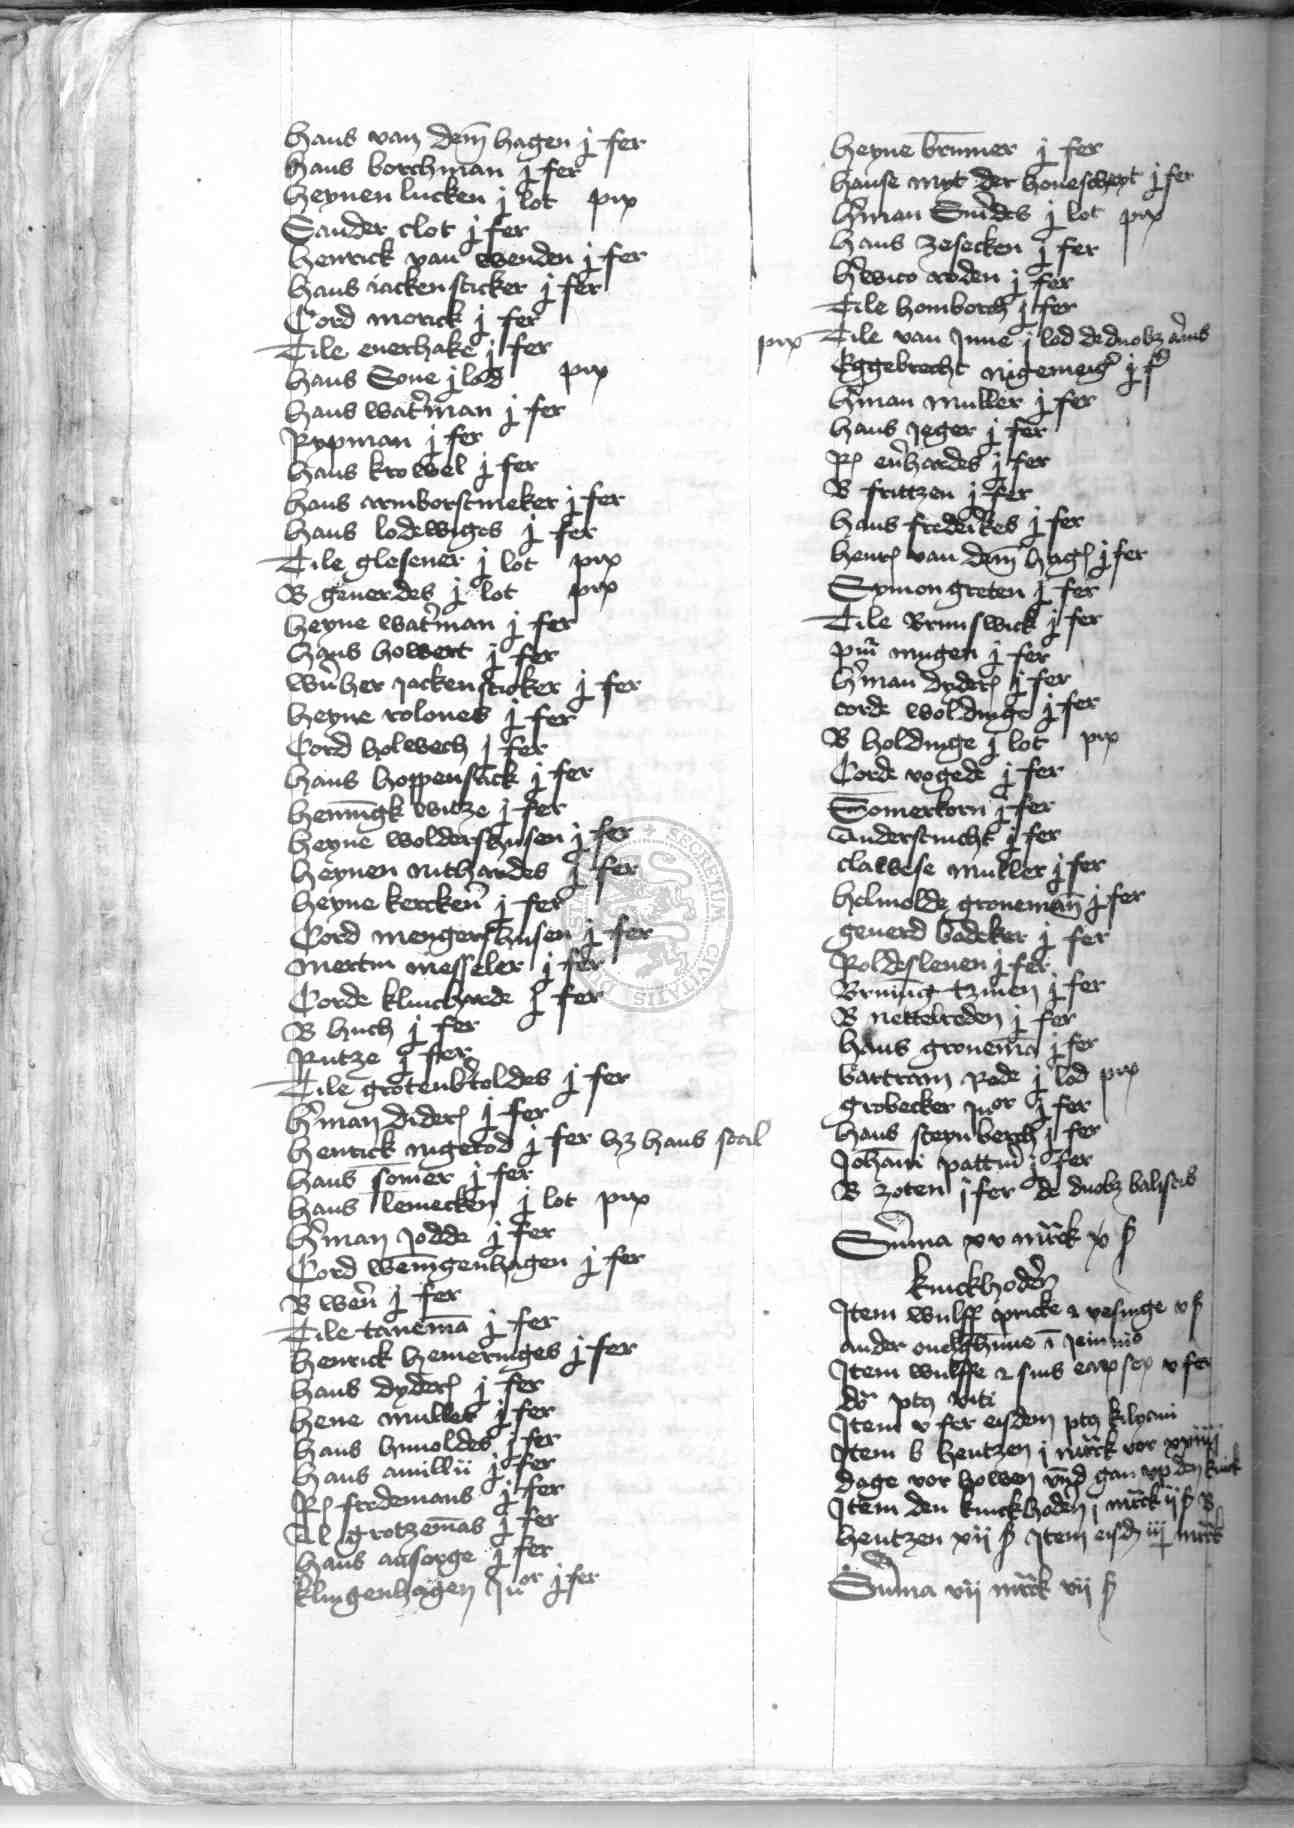 hans van dem̄ hagen j fer
hans borchman j fer
heynen lucken j lot pix
Sander clot j fer
henrick van wenden j fer
hans iackensticker j fer
Cord morick j fer
Tile euerhake j fer
hans Sone j lod pix
hans wat'man j fer
Rypman j fer
hans krowel j fer
hans armborstmeker j fer
hans lodewiges j fer
Tile glesener j lot pix
B geuerdes j lot pix
heyne wat'man j fer
hans howert j fer
w'nher jackensticker j fer
heyne rolones j fer
Cord holwech j fer
hans hoppensack j fer
hennīgk witze j fer
heyne woldershusen j fer
heynen nithardes j fer
heyne kercken' j fer
Cord mengershusen j fer
mertin messeler j fer
Corde klinchharde j fer
B huch j fer
Rutze j fer
Tile grotenb'toldes j fer
h'man dider j fer
henrick nigerod j fer hans
hans somer j fer
hans lemecken j lot pix
h'man jodde j fer
Cord wenīgenhagen j fer
B wen' j fer
Tile tanemā j fer
henrick hemeringes j fer
hans dyder j fer
hene muller j fer
hans hinoldes j fer
hans amillii j fer
fredemans j fer
grotzemās j fer
hans ansorge j fer
klingenhagen ju'or j fer
heyne brūner j fer
hanse myt der houescheyt j fer
h'man Sm'des j lot pix
hans zesecken j fer
h'wico roden j fer
Tile homborch j fer
pix Tile van June j lod de duobz
Eggebrecht nigemeig' j f'
h'man muller j fer
hans Jeger j fer
eu'hardes j fer
B frittzen j fer
hans frederkes j fer
henr van dem̄ hag j fer
Symon greten j fer
Tile Brunswick j fer
mugen j fer
h'man dyder j fer
corde woldinge j fer
B holdinge j lot pix
Corde vogede j fer
Somerkorn j fer
Anderstucht j fer
clawese muller j fer
helmolde gronemān j fer
geuerd bodeker j fer
Roldesleuen j fer
Brunīg tzinen j fer
B nettelreden j fer
hans gronemā j fer
bartram Rode j lod pix
grobecker ju'or j fer
hans steynberch j fer
Johāni pattin j fer
B zoten j fer de duobz balistis
Sūma xv m'rck v ß
knickhoder'
Item wulff
ander
Item wulffe v fer
viti
Item v fer eisdem kilyani
Item b hentzen j m'rck vor xxiiij
dage vor howen vn̄d gan vp den knick
Item den knickhoder' j m'rck ij ß B
hentzen xij ß Item m'rck
Sūma vij m'rck vij ß